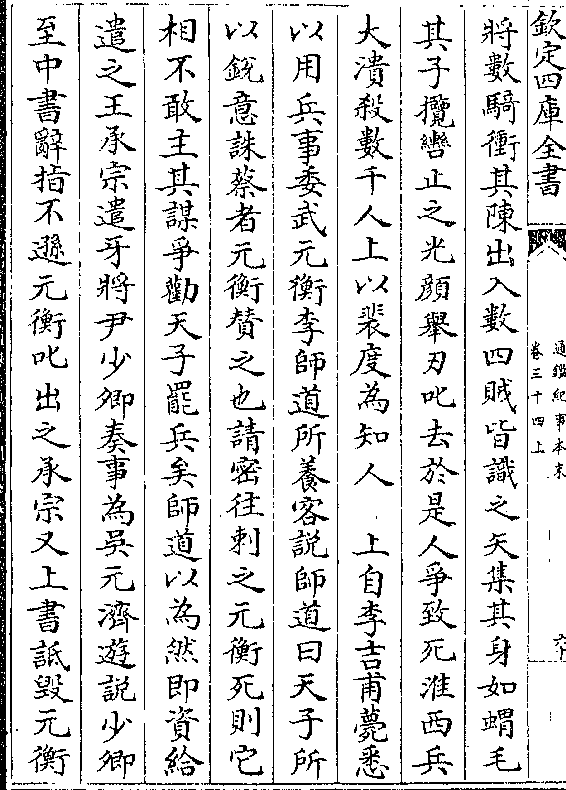 欽定四庫全書
通鑑紀事本末
卷三十四上
將數騎衝其陳出入數四賊皆識之矢集其身如蝟毛
其子攬轡止之光顔舉刃叱去於是人爭致死淮西兵
大潰殺數千人上以裴度為知人 上自李吉甫薨悉
以用兵事委武元衡李師道所養客説師道曰天子所
以鋭意誅蔡者元衡賛之也請密往刺之元衡死則它
相不敢主其謀爭勸天子罷兵矣師道以為然即資給
遣之王承宗遣牙將尹少卿奏事為吳元濟遊説少卿
至中書辭指不遜元衡叱出之承宗又上書詆毀元衡